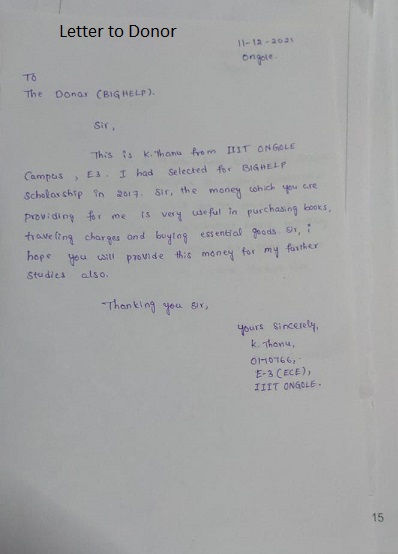 Letter to Donor
11-12-2021
Ongole.
To
The Donar (BIGHELP).
Sir,
This is K.Thanu from IIIT ONGOLE
Campus, E3. I had selected for BIGHELP
Scholarship in 2017. Sir, the money which you are
providing for me is very useful in purchasing books,
traveling charges and buying essential goods. Sir, i
hope you will provide this money for my further
studies also.
Thanking you sir,
Yours sincerely,
K. Thanu,
E-3 (ECE),
IIIT ONGOLE.
15